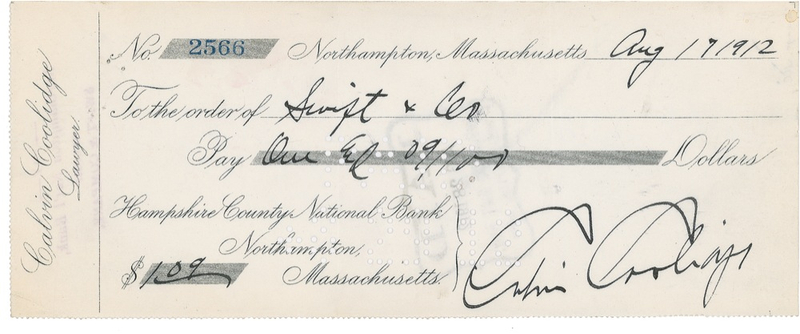 Calvin Coolidge
Lawyer.
No. 2566 Northampton, Massachusetts Aug 17 1912
To the order of Swift & Co
Pay One & 09/100 Dollars
Hampshire County National Bank
Northampton,
$ 1.09 Massachusetts.
Calvin Coolidge